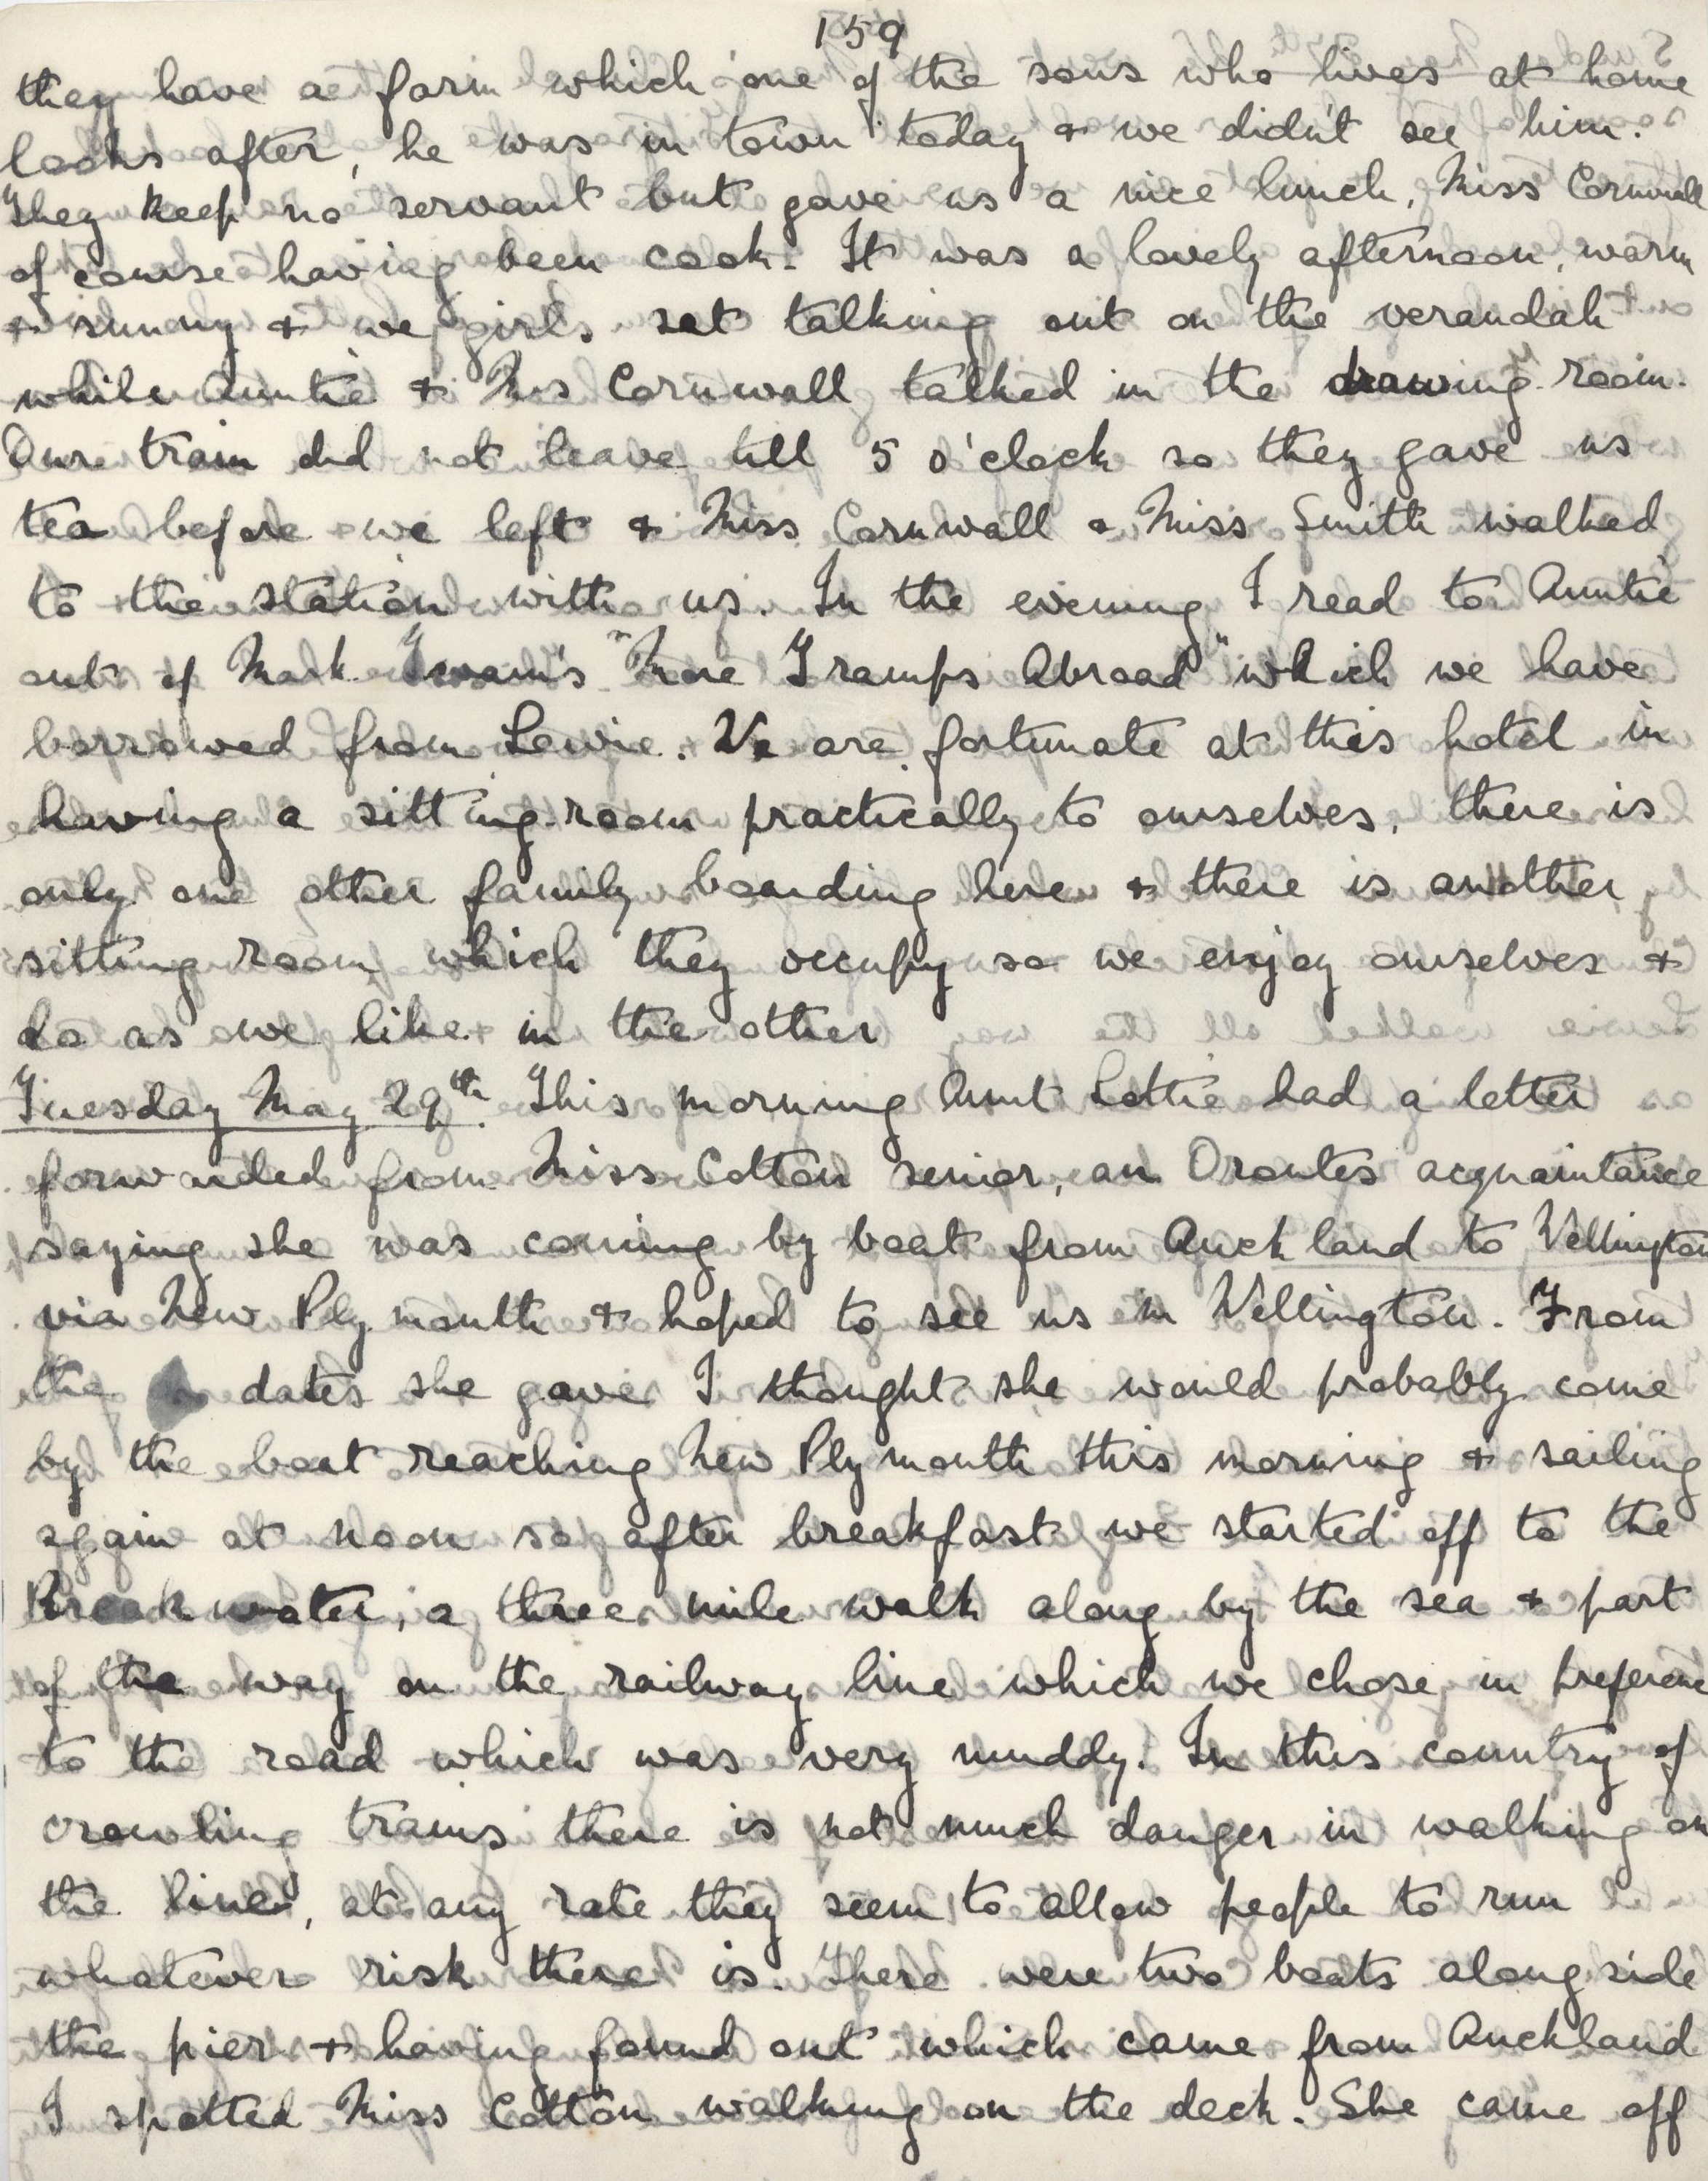 159
they have a farm which one of the sons who lives at home
looks after, he was in town today & we didn't see him.
They keep no servant but gave us a nice lunch, Miss Cornwall
of course having been cook. It was a lovely afternoon, warm
& sunny & we girls sat talking out on the verandah
while Auntie & Mrs Cornwall talked in the drawing-room.
Our train did not leave till 5 o'clock so they gave us
tea before we left & Miss Cornwall & Miss Smith walked
to the station with us. In the evening I read to Auntie
out of Mark Twain's "More Tramps Abroad" which we have
borrowed from Lewie. We are fortunate at this hotel in
having a sitting-room practically to ourselves, there is
only one other family boarding here & there is another
sitting room which they occupy so we enjoy ourselves &
do as we like in the other
Tuesday May 29th. This morning Aunt Lottie had a letter
forwarded from Miss Cotton senior, an Orontes acquaintance
saying she was coming by boat from Auckland to Wellington
via New Plymouth & hoped to see us in Wellington. From
the dates she gave I thought she would probably come
by the boat reaching New Plymouth this morning & sailing
again at noon so after breakfast we started off to the
Breakwater, a three mile walk along by the sea & part
of the way on the railway line which we chose in preference
to the road which was very muddy. In this country of
crawling trains there is not much danger in walking on
the line, at any rate they seem to allow people to run
whatever risk there is. There were two boats alongside
the pier & having found out which came from Auckland
I spotted Miss Cotton walking on the deck. She came off